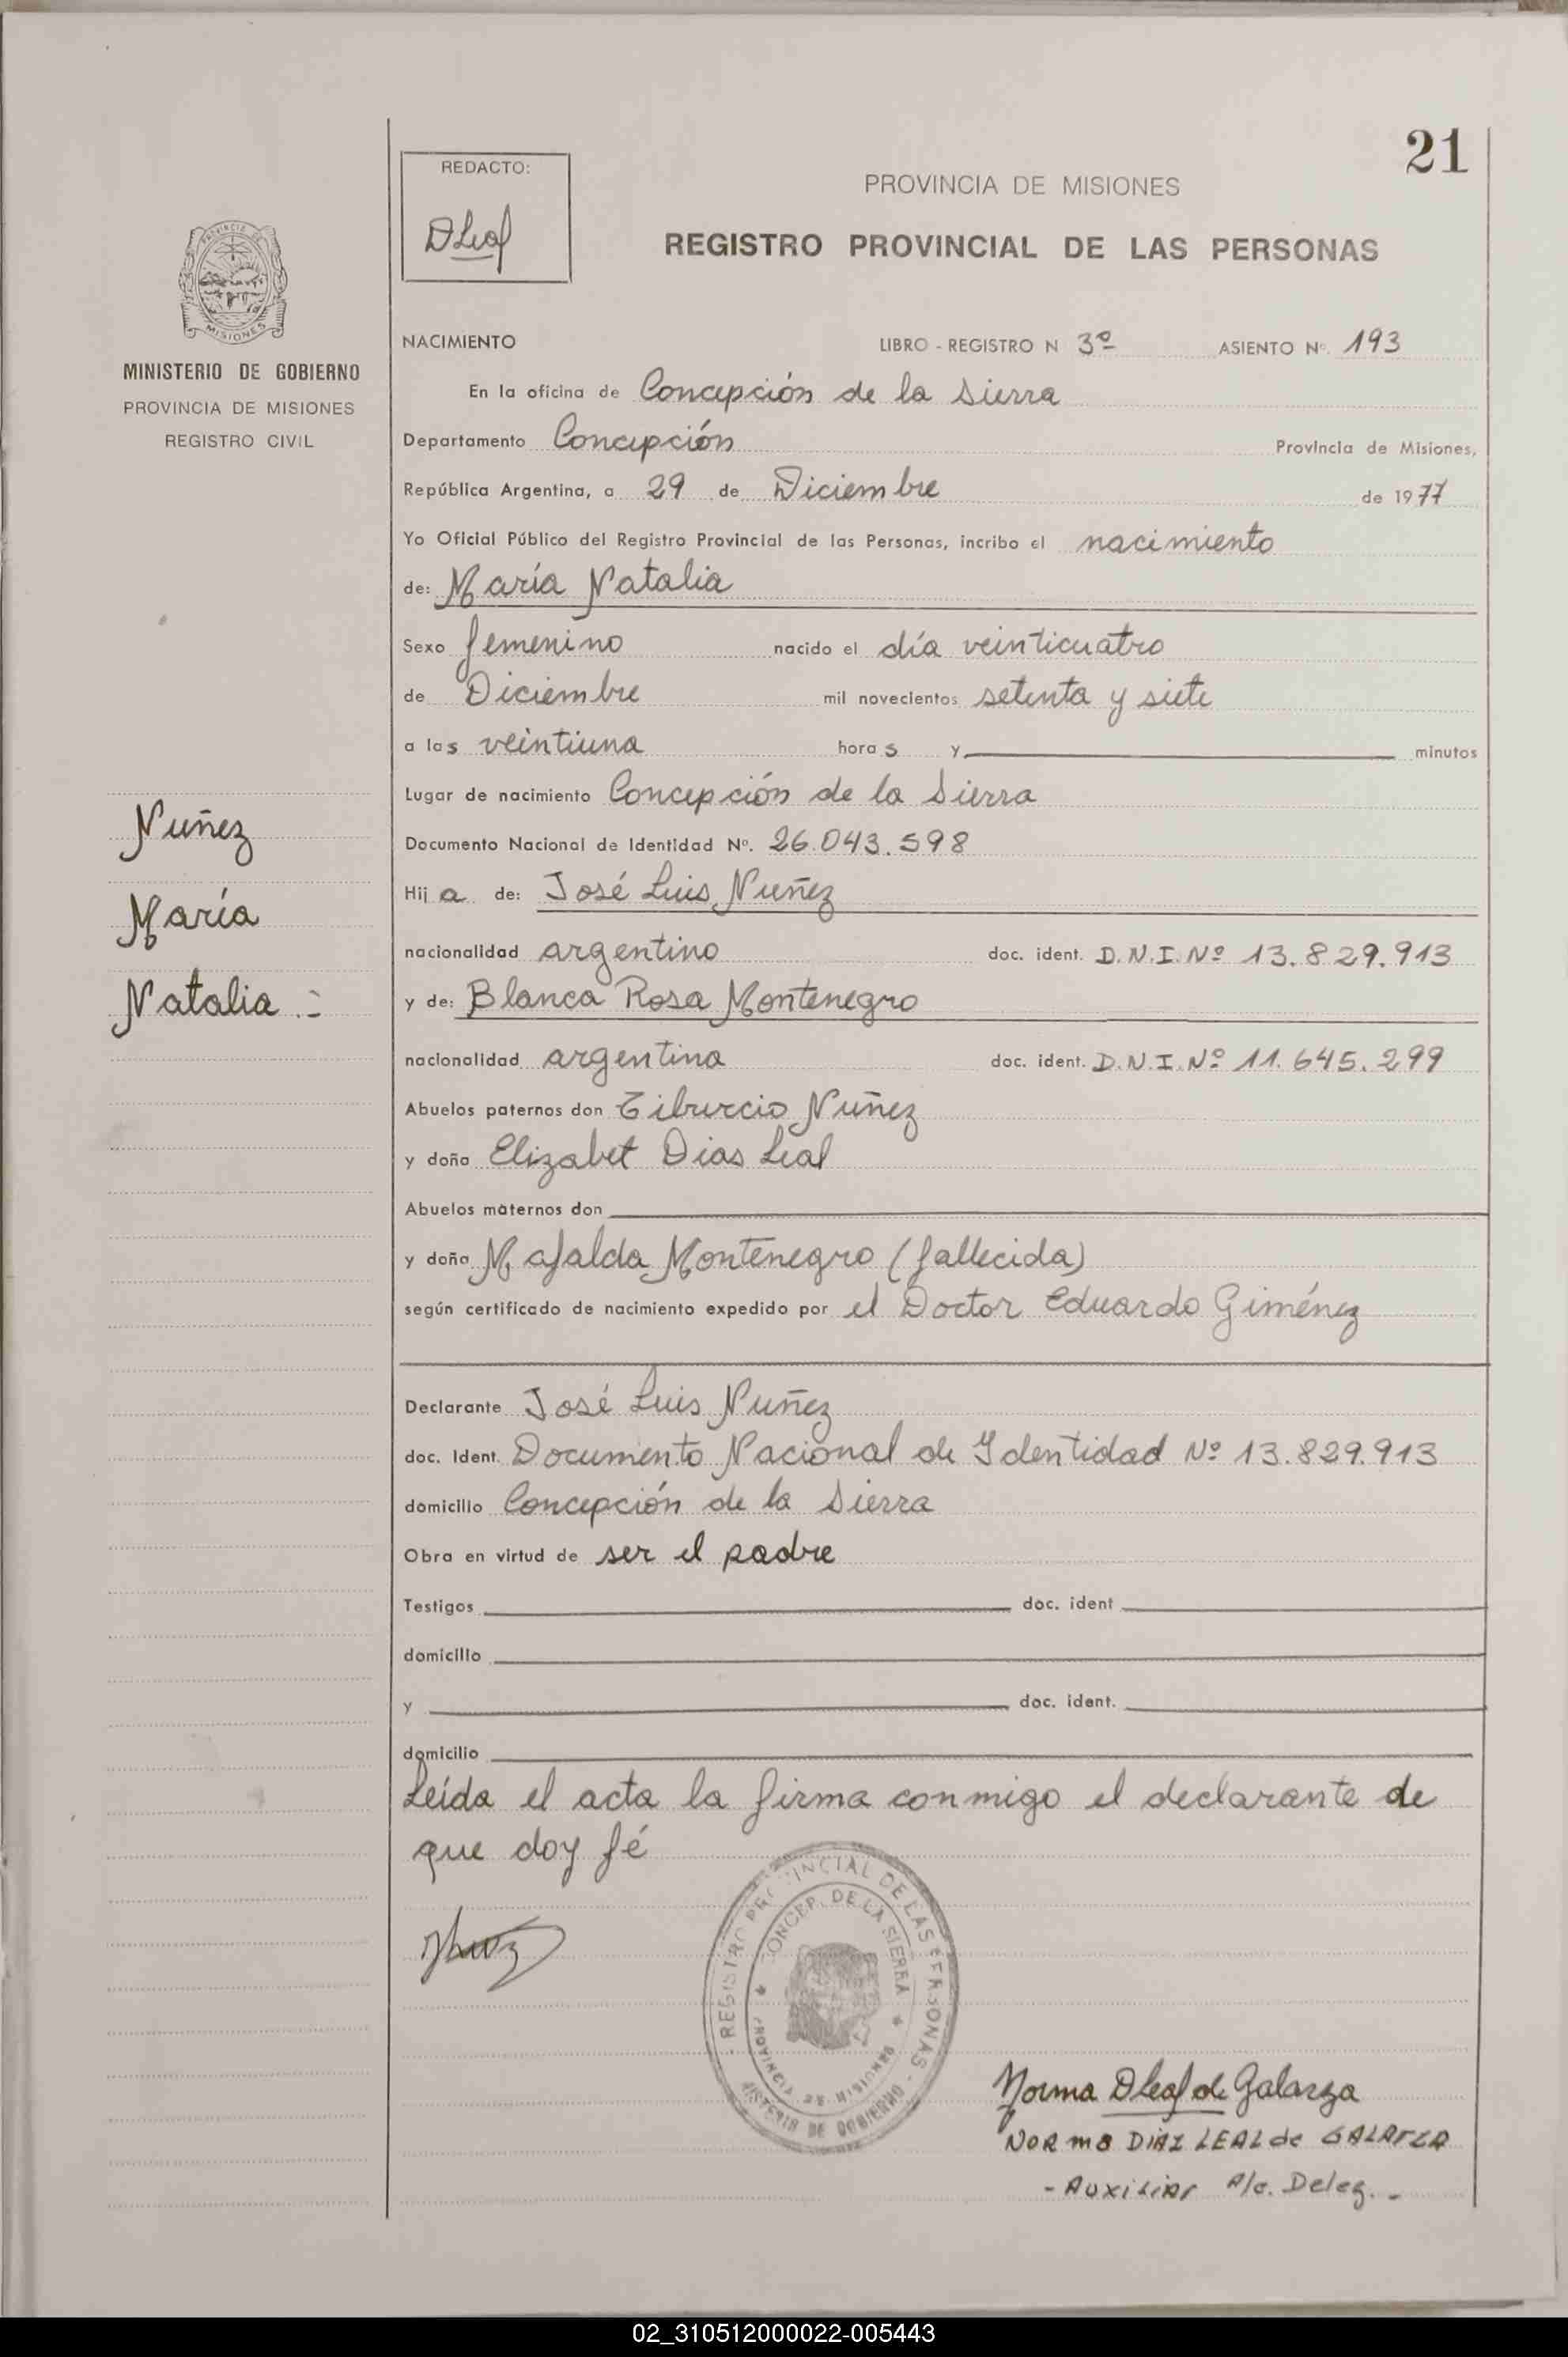 21
REDACTO:
DLeal
PROVINCIA DE MISIONES
REGISTRO PROVINCIAL DE LAS PERSONAS
PROVINCIA DE
MISIONES
MINISTERIO DE GOBIERNO
PROVINCIA DE MISIONES
REGISTRO CIVIL
NACIMIENTO LIBRO - REGISTRO N 3º ASIENTO Nº. 193
En la oficina de Concepción de la Sierra
Departamento Concepción Provincia de Misiones,
República Argentina, a 29 de Diciembre de 1977
Yo Oficial Público del Registro Provincial de las Personas, incribo el nacimiento
de: María Natalia
Sexo femenino nacido el día veinticuatro
de Diciembre mil novecientos setenta y siete
a las veintiuna horas y minutos
Lugar de nacimiento Concepción de la Sierra
Nuñez
María
Natalia .-
Documento Nacional de Identidad Nº. 26.043.598
Hija de: José Luis Nuñez
nacionalidad argentino doc. ident. D.N.I. Nº 13.829.913
y de: Blanca Rosa Montenegro
nacionalidad argentina doc. ident. D.N.I. Nº 11.645.299
Abuelos paternos don Tiburcio Nuñez
y doña Elizabet Dias Leal
Abuelos maternos don
y doña Mafalda Montenegro (fallecida)
según certificado de nacimiento expedido por el Doctor Eduardo Giménez
Declarante José Luis Nuñez
doc. Ident. Documento Nacional de Identidad Nº 13.829.913
domicilio Concepción de la Sierra
Obra en virtud de ser el padre
Testigos doc. ident
domicilio
y doc. ident.
domicilio
Leída el acta la firma conmigo el declarante de
que doy fé
REGISTRO PROVINCIAL DE LAS PERSONAS
CONCEP. DE LA SIERRA
PROVINCIA DE MISIONES
MINISTERIO DE GOBIERNO
Norma DLeal de Galarza
NORMA DIAZ LEAL de GALARZA
- Auxiliar A/c. Deleg. -
02_310512000022-005443